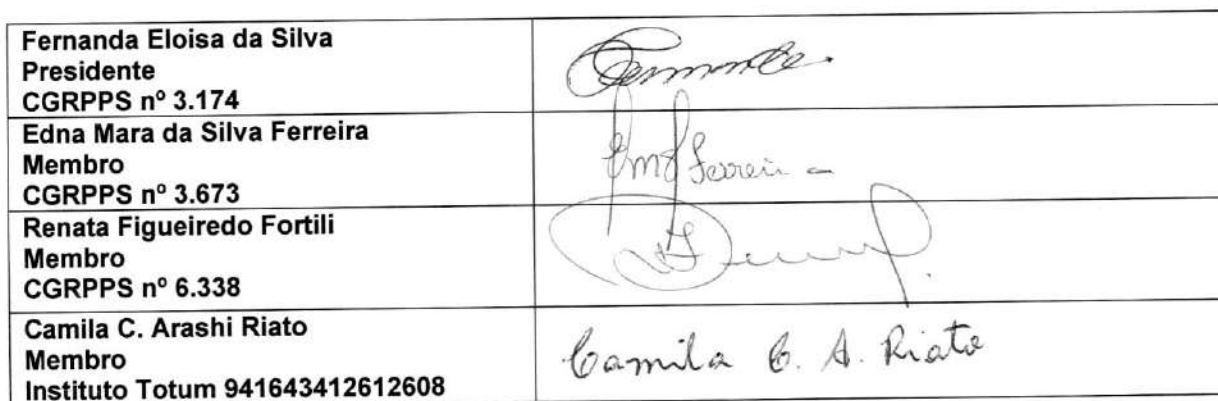 Fernanda Eloisa da Silva
Presidente
CGRPPS nº 3.174
Edna Mara da Silva Ferreira
Membro
CGRPPS nº 3.673
EMSFerreira
Renata Figueiredo Fortili
Membro
CGRPPS nº 6.338
Camila C. Arashi Riato
Membro
Instituto Totum 941643412612608
Camila C. A. Riato